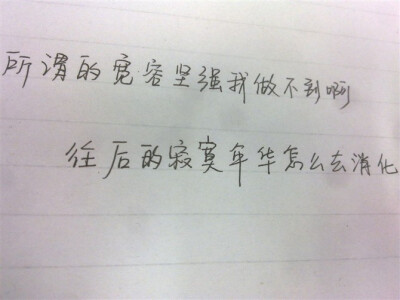 所谓的宽容坚强我做不到啊
往后的寂寞年华怎么去消化